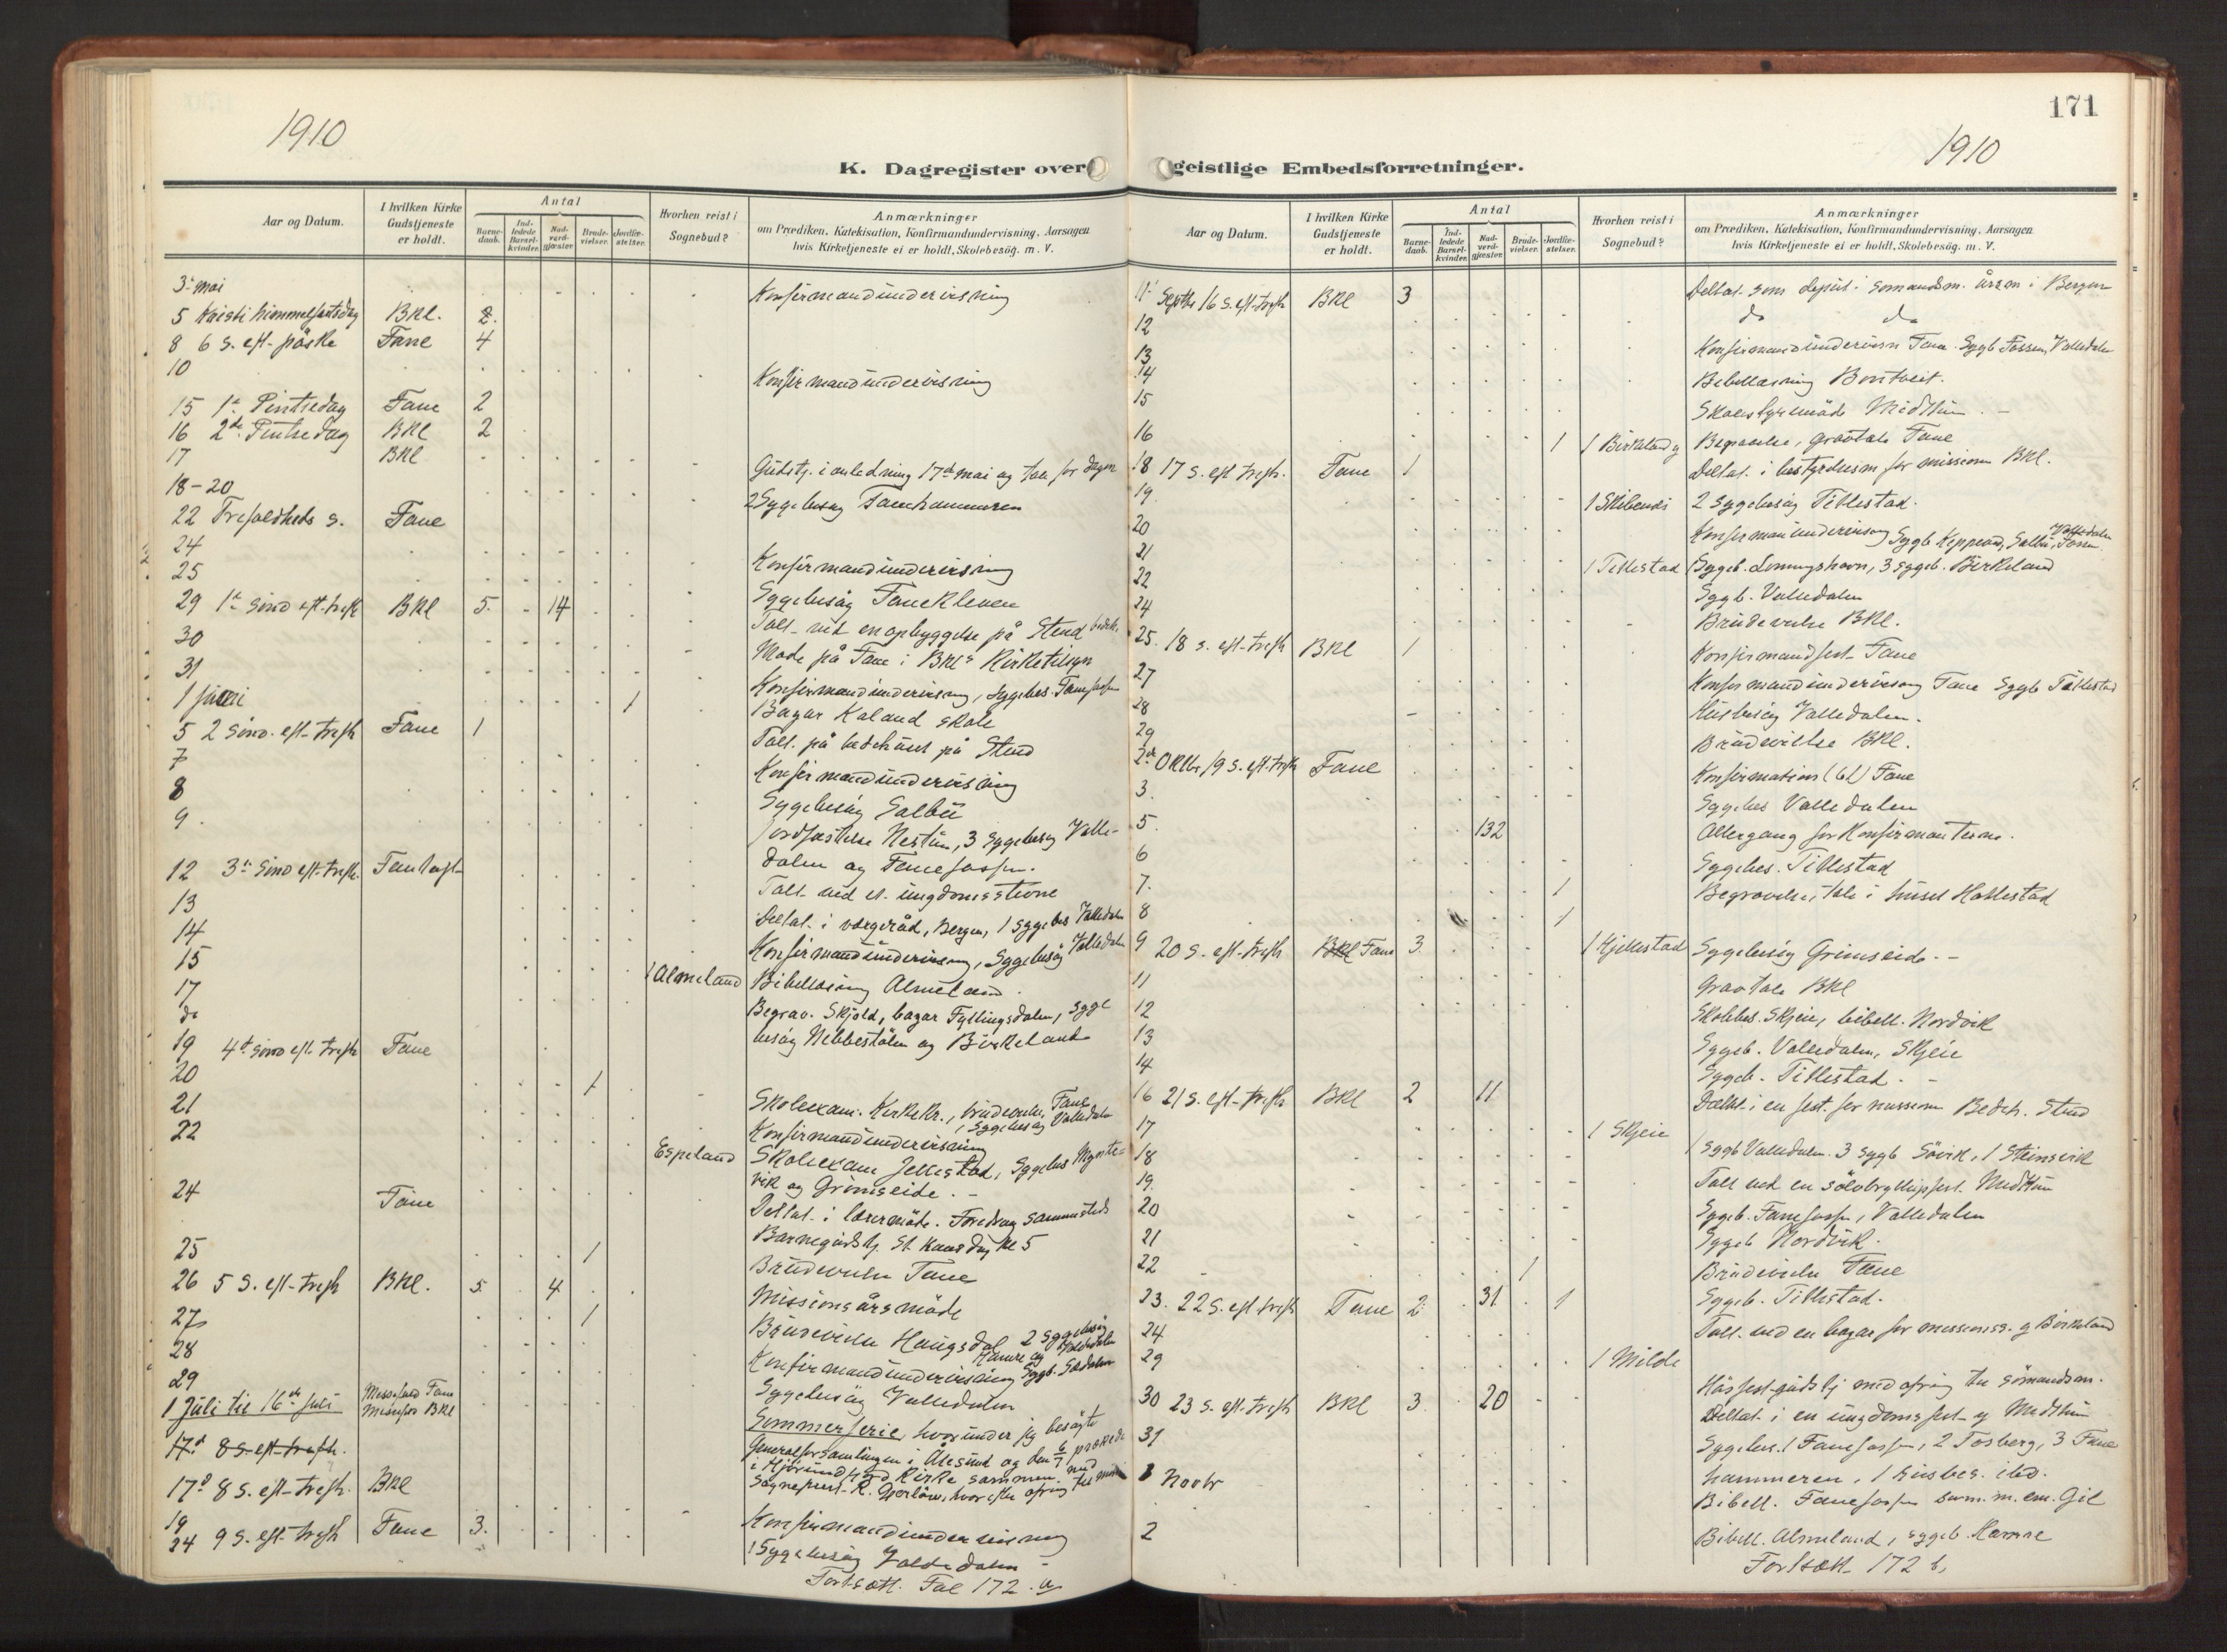 171
1910
1910
K. Dagregister over geistlige Embedsforretninger.
Aar og Datum.
I hvilken Kirke Gudstjeneste er holdt.
Antal
Barne-daab.
Ind-ledede Barsel-kvinder.
Nad-verd-gjæster.
Brude-vielser.
Jordfæ-stelser.
Hvorhen reist i Sognebud?
Anmærkninger
om Prædiken, Katekisation, Konfirmandundervisning, Aarsagen
hvis Kirketjeneste ei er holdt, Skolebesög. m. V.
3. mai Konfirmandundervisning
5 Kristi himmelfartsdag BKl. 2.
8 6 s. eft. påske Fane 4
10 Konfirmandundervisning
15 1ste Pintsedag Fane 2
16 2den Pintsedag BKl 2
17 BKl Gudstj. i anledning 17de mai og tale for dagen
18-20 2 Sygebesøg Fanehammeren
22 Trefoldheds s. Fane
24 Konfirmandundervisning
25 Sygebesøg Fanekleven
29 1ste Sønd eft. trefh BKl 5. 14 Talt ved en opbyggelse på Stend
30 Møde på Fane i BKls Kirketilsyn
31 Konfirmandundervisning, sygebes.
1 juni 1 Bazar Kaland skole
5 2 Sønd. eft. trefh Fane 1 Talt. på bedehuset på Stend
7 Konfirmandundervisning
8 Sygebesøg Salbu
9. Jordfæstelse Nestun, 3 sygebesøg Valle-
dalen og Fanefossen.
12 3die Sønd eft. trefh. Talt ved et ungdomsstevne
13 Deltat. i vergeråd, Bergen, 1 sygebes Valledalen
14 Konfirmandundervisning, Sygebesøg Valledalen
15 1 Almeland Bibellæsning Almeland
17 Begrav. Skjold, bazar Fyllingsdalen, syge
do besøg Nebbestølen og Birkeland
19 4de sønd eft. trefh Fane
20 1 Skoleexam. Kirkekr., brudevielse, Fane
21 Konfirmandundervisning, 1 Sygebesøg Valledalen
22 Espeland Skoleexam Jellestad, Sygebes
vik og Grimseide.
24 Fane Deltat. i lærermøde. Foredrag sammesteds
Barnegudstj. St. Hansdag kl 5
25 1 Brudevielse Fane
26 5 S. eft. trefh BKl. 5. 4 Missionsårsmøde
27 1 Brudevielse Haugsdal 2 sygebesøg Hamre og Valledalen
28 Konfirmandundervisning Sygb.
29 Sygebesøg Valledalen
1 Juli til 16de juli Messefald Fane
Messefor BKl
Sommerferie, hvorunder jeg besøgte
Generalforsamlingen i Ålesund og den prækede
i Hjørundfjord Kirke sammen med
Sogneprest R.
17d 8 s. eft. trefh.
17d 8 s. eft. trefh. BKl
19 Konfirmandundervisning
24 9 s. eft. trefh Fane 3. 1 Sygebesøg Valledalen
Fortsætt. Fol 172. a
Aar og Datum.
I hvilken Kirke Gudstjeneste er holdt.
Antal
Barne-daab.
Ind-ledede Barsel-kvinder.
Nad-verd-gjæster.
Brude-vielser.
Jordfæ-stelser.
Hvorhen reist i Sognebud?
Anmærkninger
om Prædiken, Katekisation, Konfirmandundervisning, Aarsagen
hvis Kirketjeneste ei er holdt, Skolebesög. m. V.
11 Septbr 16 s. eft. trefh BKl 3 Deltat. som i sømandsm. årsm. i Bergen
12 do do
13 Konfirmandundervisn Fane. Sygb Fossen, Valledalen
14 Bibellæsning Bontveit.
15 Skolestyremøde Midttun
16 1 1 Birkeland Begravelse, gravtale Fane
18 17 S. eft trefh. Fane 1 Deltat. i bestyrelsesm for missionen BKl.
19. 1 Skibenes 2 sygebesøg Titlestad.
20 Konfirmandundervisning Sygb. Salbu, Fossen, Valledalen
21 1 Titlestad Sygeb. 3 sygeb. Birkeland
22 Sygb. Valledalen
24 Brudevielse BKl.
25. 18 s. eft. trefh BKl 1 Konfirmandfest Fane
27 Konfirmandundervisning Fane Sygb Titlestad
28 Husbesøg Valledalen.
29 Brudevielse BKl.
2den Oktbr 19 S. eft. trefh Fane Konfirmation (61) Fane
3. Sygebes Valledalen
5. 132 Altergang for Konfirmanterne.
6 Sygebes. Titlestad
7. 1 Begravelse, tale i huset Hatlestad
8 1
9 20 S. eft. trefh BKl Fane 3. 1 Hjellestad Sygebesøg Grimseide.
11 Gravtale BKl
12 Skolebes. Skjeie, bibell. Nordvik
13 Sygeb. Valledalen, Skjeie
14 Sygeb. Titlestad.
16 21 S. eft. trefh BKl 2 11 Deltat. i en fest. for missionen Bedeh. Stend
17 1 Skjeie
18 1 Sygb Valledalen. 3 sygb Søvik, 1 Steinsvik
19. Talt ved en sølvbryllupsfest. Midttun
20 Sygeb. Fanefossen, Valledalen
21 Sygeb Nordvik.
22 1 Brudevielse Fane
23. 22 S. eft trefh Fane 2 31. 1 Sygeb. Titlestad.
24 Talt. ved en bazar for missionss. Birkeland
29 1 Milde
30 23 S. eft. trefh BKl 3. 20 Høstfest-gudstj med ofring til sømandsm.
31 Deltat. i en ungdomsfest Midttun
Sygebes. 1 Fanefossen, 2 Tosberg, 3 Fane
hammeren, 1 husbes. ibd.
1 Novbr Bibell. Fanefossen
2 Bibell. Almeland, sygeb. Hamre
Fortsætt 172 b,